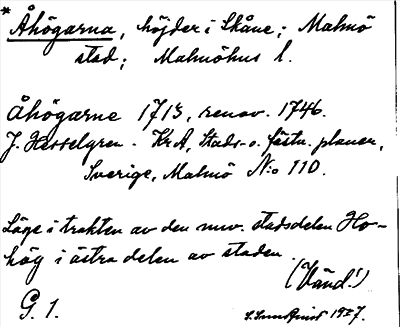 * Åhögarna, höjder i Skåne; Malmö
stad; Malmöhus l.
Åhögarne 1713, renov. 1746.
J. Hesselgren - Kr A, Stads- o. fästn. planer,
Sverige, Malmö N:o 110.
Läge i trakten av den nuv. stadsdelen Ho-
hög i östra delen av staden.
(Vänd!)
G. 1. 1927.